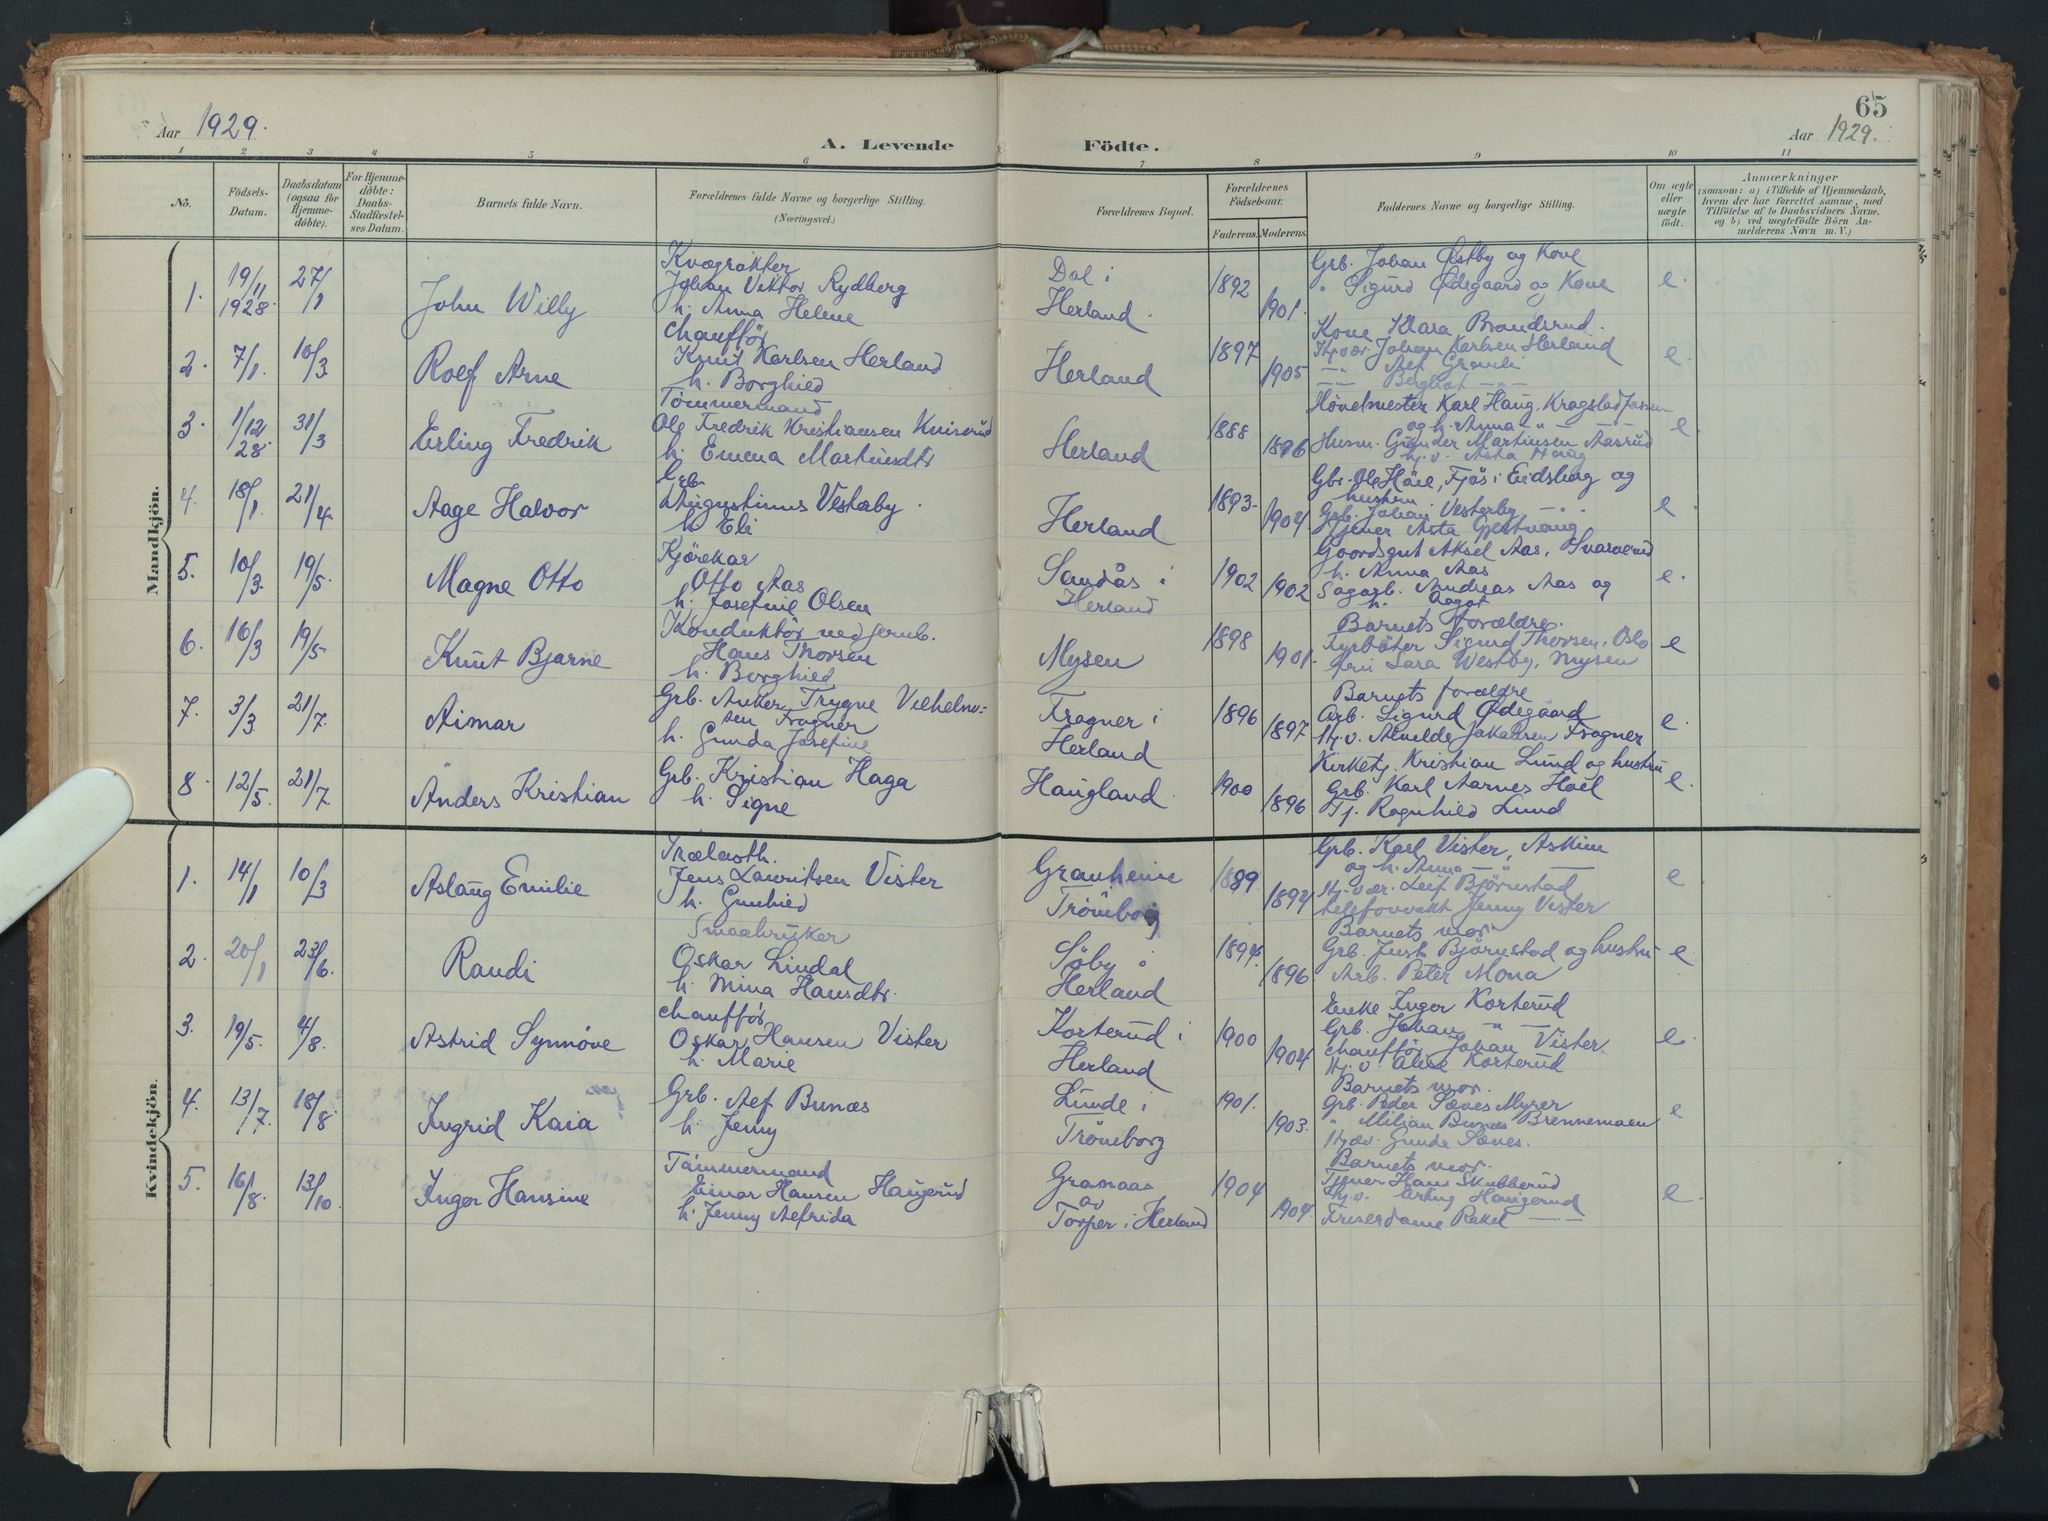 Aar 1929.
A. Levende Födte.
65
Aar 1929.
1 2 3 4 5 6 7 8 9 10 11
No.
Födsels-
Datum.
Daabsdatum
(ogsaa för
Hjemme-
döbte).
For Hjemme-
döbte:
Daabs-
Stadfæstel-
ses Datum.
Barnets fulde Navn.
Forældrenes fulde Navne og borgerlige Stilling.
(Næringsvei.)
Forældrenes Bopæl.
Forældrenes
Födselsaar.
Faderens. Moderens.
Faddernes Navne og borgerlige Stilling.
Om ægte
eller
uægte
födt.
Anmærkninger
(saasom: a) i Tilfælde af Hjemmedaab,
hvem der har forrettet samme, med
Tilföielse af to Daabsvidners Navne,
og b) ved uægtefödte Börn An-
melderens Navn m. V.)
Mandkjön.
1. 19/11 1928. 27/1
John Willy
Kvægrøkter
Johan Viktor Rydberg
h. Anna Helene
Dal i
Herland.
1892
1901.
Grb. Johan Østby og Kone
" Sigurd Ødegaard og Kone
e.
2. 7/1. 10/3.
Rolf Arne
Chauffør
Knut Karlsen Herland
h. Borghild
Herland
1897
1905
Kone Klara Brandsrud.
Johan Karlsen Herland
e.
3. 1/12 28. 31/3
Erling Fredrik
Tömmermand
Ole Fredrik Kristiansen
h. Emma Martinsdtr
Herland
1888
1896
Karl Haug,
og h. Anna
Husm. Gunder Martinsen Aasrud
Asta Haug
e.
4. 18/1. 21/4.
Aage Halvor
Grb.
Augustinus Vestaby.
h. Eli
Herland
1893.
1904
Gbr. Ole Høie, i Eidsberg og
hustru
Grb. Johan Vesterby
e.
5. 10/3. 19/5.
Magne Otto
Kjørekar
Otto Aas
h. Josefine Olsen
Sandås i
Herland
1902
1902
Gaardsgut Aksel Aas,
h. Anna Aas
Andreas Aas og
h. Aagot
e.
6. 16/3 19/5
Knut Bjarne
Konduktör ved jernb.
Hans Thovsen
h. Borghild
Mysen
1898
1901.
Barnets forældre.
Fyrbøter Sigurd Thovsen, Oslo
Sara Westby, Mysen
e
7. 3/3. 21/7.
Aimar
Grb. Anker Trygve Vilhelm-
sen Fragner
h. Gunda Josefine
Fragner i
Herland
1896
1897
Barnets forældre
Arb. Sigurd Ødegaard
Hj.v. Alvilde Jakobsen Fragner
e.
8. 12/5. 21/7.
Anders Kristian
Grb. Kristian Haga
h. Signe
Haugland.
1900
1896
Kirketj. Kristian Lund og hustru
Grb. Karl Aarnes Hoel
Tj. Ragnhild Lund
e.
Kvindekjön.
1. 14/1 10/3
Aslaug Emilie
Trælasth.
Jens Lauritsen Vister
h. Gunhild
Granheim
Trömborg
1889
1894
Grb. Karl Vister, Askim
og h. Anna
Hj.vær. Leif Bjørnstad
telefonvakt Jenny Vister
e
2. 20/1 23/6.
Randi
Smaabruker
Oskar Lindal
h. Mina Hansdtr.
Søby i
Herland
1894.
1896
Barnets mor
Grb. Just Bjørnstad og hustru
Arb. Peter Mona
e
3. 19/5. 4/8.
Astrid Synnöve
Chauffør
Oskar Hansen Vister
h. Marie
Korterud i
Herland
1900
1904
Enke Inger Korterud
Grb. Johan " —
chauffør Johan Vister.
Hj.v. Korterud
e.
4. 13/7. 18/8
Ingrid Kaia
Grb. Alf Bunæs
h. Jenny
Lunde i
Trömborg
1901.
1903.
Barnets mor.
Grb. Peder Sæves Myrer
" Milian Bunæs Brennemoen
Gunda Sæves.
e
5. 16/8 13/10
Inger Hansine
Tömmermand
Einar Hansen Haugerud
h. Jenny Alfrida
Granaas
av
Torper i Herland
1904
1904.
Barnets mor.
Hans Skubberud
Hj.v. Erling Haugerud
Friserdame Rakel — —
e.